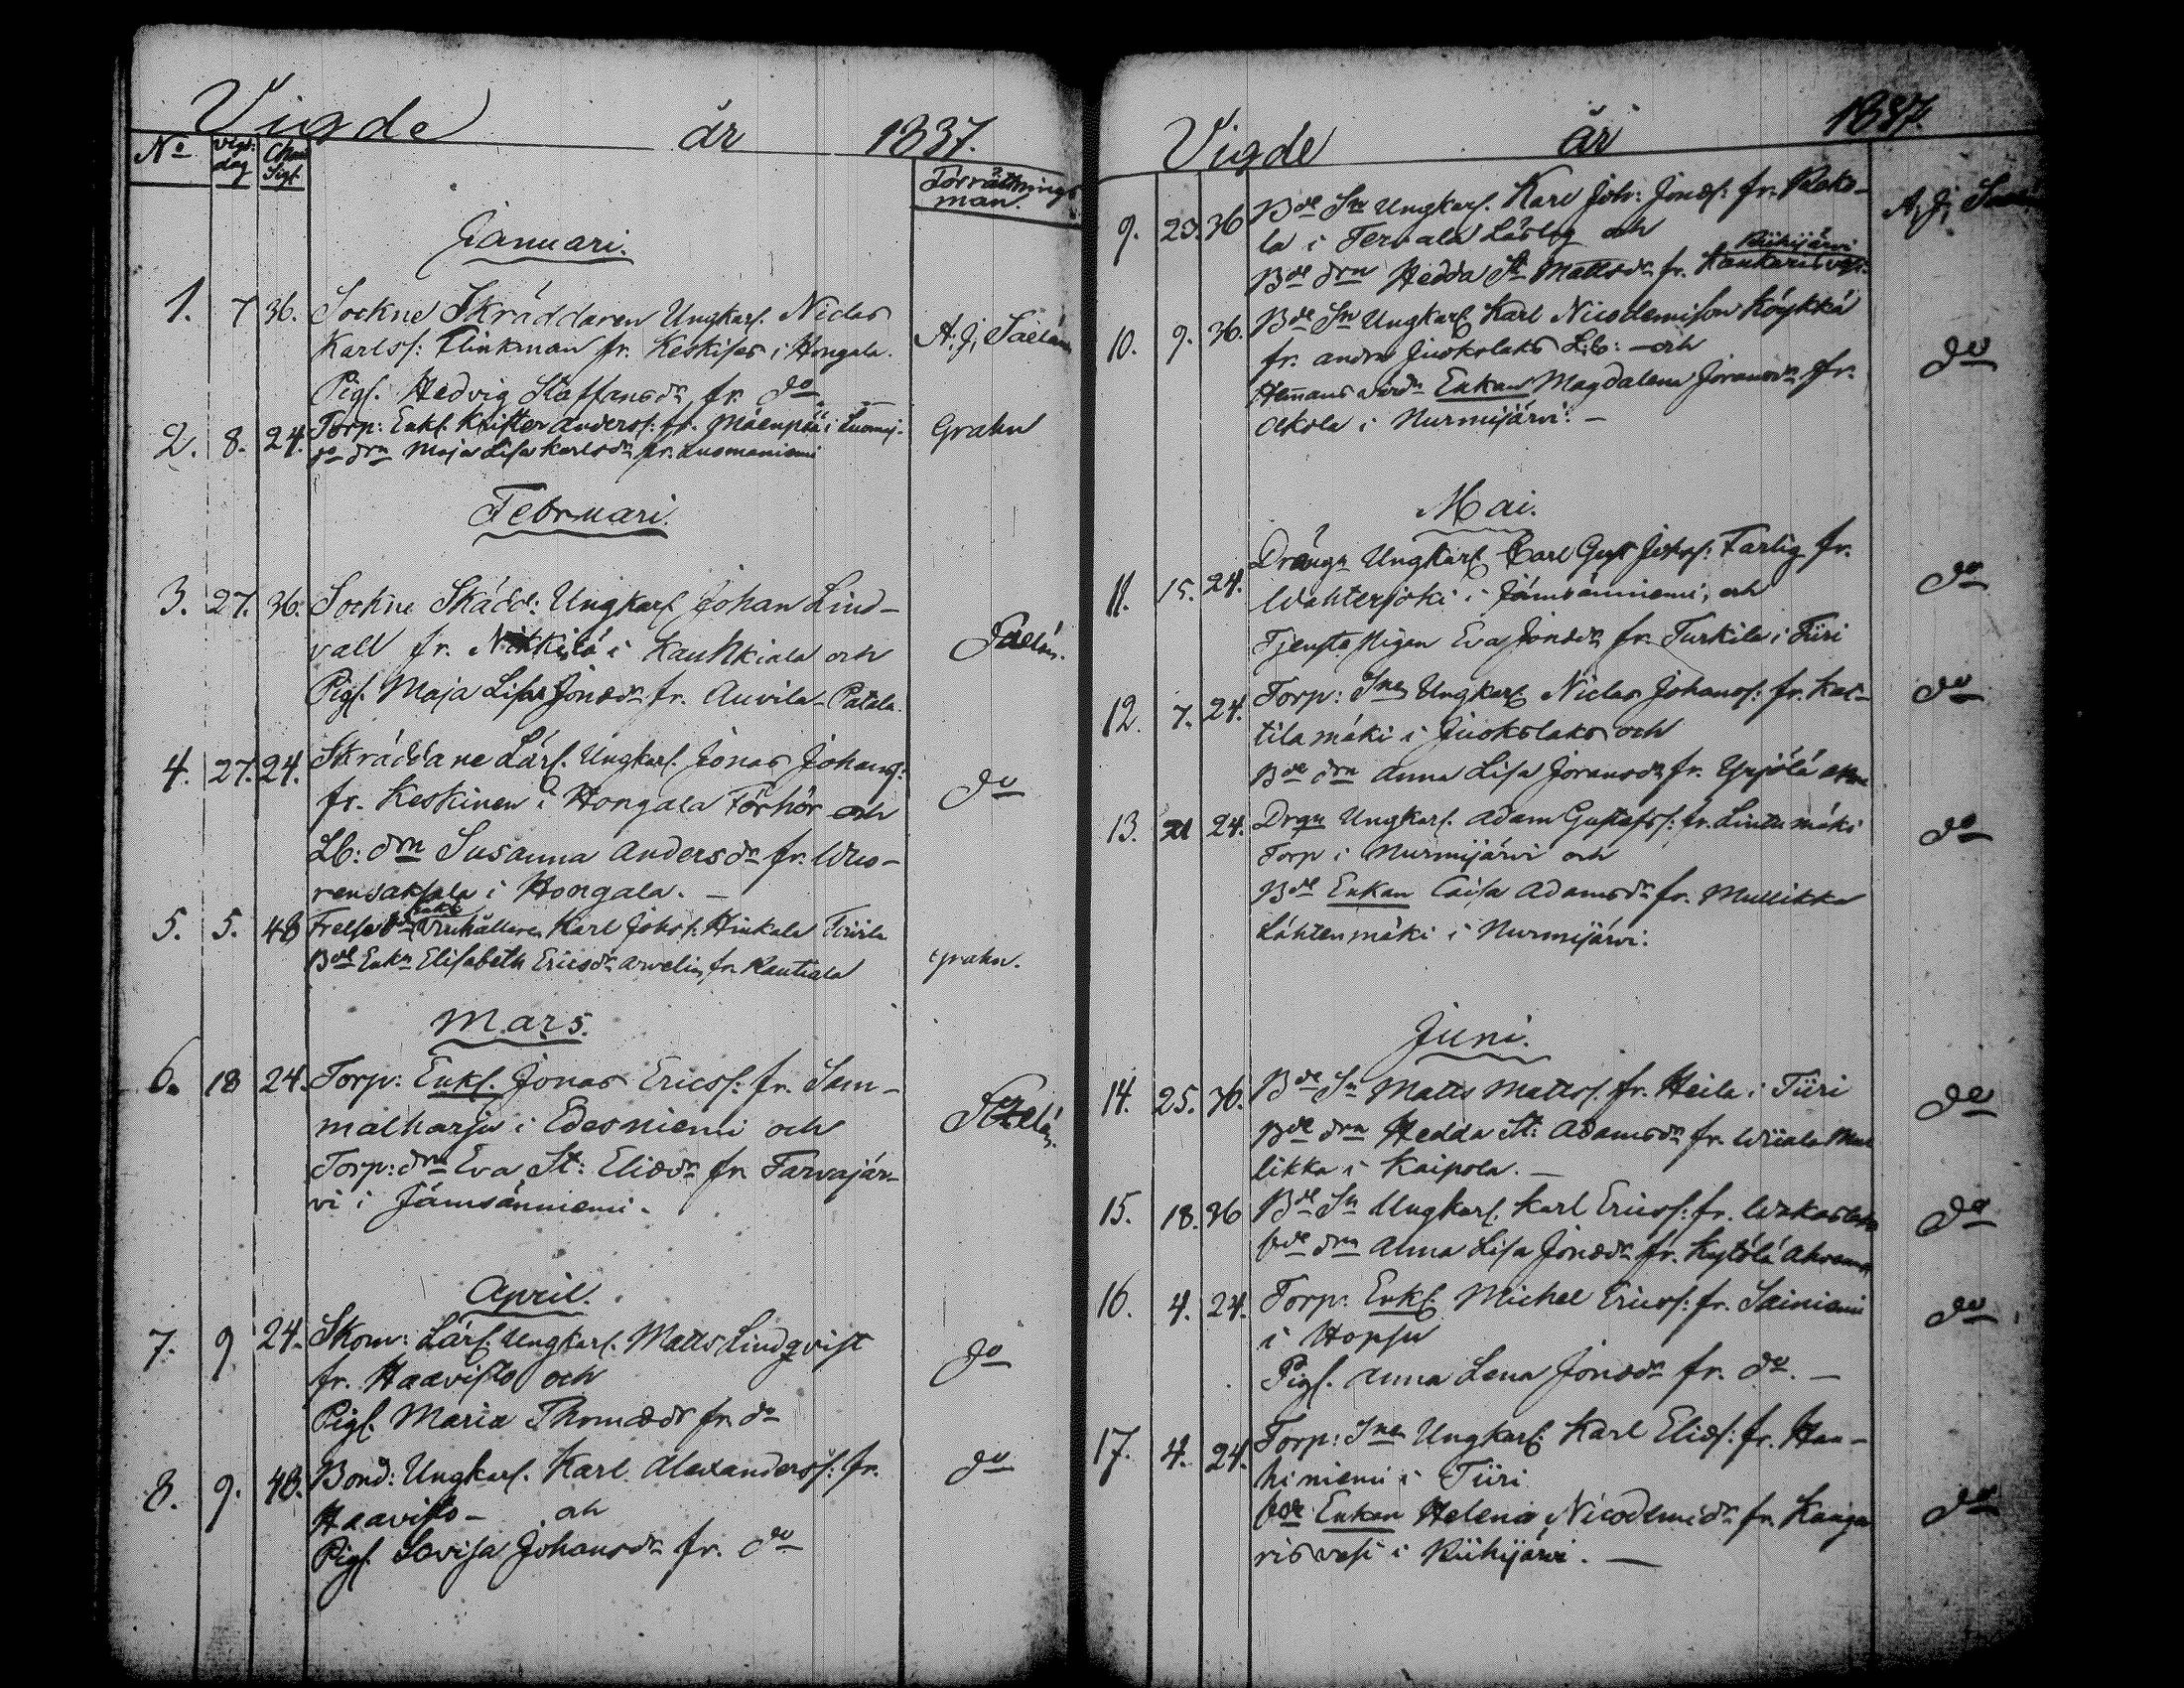 Vigde år 1837.
No Vigs: dag Char Sigf. Förrättnings man.
Januari.
1. 7 36. Sockne Skräddaren Ungkarl. Niclas
Karlss: Flinkman fr. Keskises i Hongala. A. J. Saelan
Pigs. Hedvig Staffansdr fr. do
2. 8. 24. Torp: Enkl. Krister Anderss: fr. Mäenpää i Luomaj. Grahn
do drn Maja Lisa Karlsdr fr. Luomaniemi
Februari.
3. 27. 36. Sockne Skädd: Ungkarl Johan Lind-
vall fr. Nikkilä i Kauhkiala och Saelan.
Pigs. Maja Lisa Jonædr fr. Auvila-Patala.
4. 27. 24. Skräddare Lärl. Ungkarl. Jonas Johanss:
fr. Keskinen i Hongala Förhör och do
Lb: drn Susanna Andersdr fr. Wuo-
rensaksala i Hongala. -
5. 5. 48 Frelse Karl Johss. Hinkala
Bde Enkn Elisabeth Ericsdr Arvelin fr. Rautiala Grahn.
Mars.
6. 18 24. Torp: Enkl. Jonas Ericss: fr. Sam-
malharju i Edesniemi och Saelan.
Torp: drn Eva St: Eliædr fr. Tarvajär-
vi i Jämsänniemi.
April.
7. 9 24. Skom: Lärl. Ungkarl. Matts Lindqvist do
fr. Haavisto och
Pigs. Maria Thomædr fr. do
8. 9. 48. Bond: Ungkarl. Karl Alexanderss: fr. do
Haavisto- och
Pigs. Lovisa Johansdr fr. do
Vigde år 1837.
9. 23. 36 Bde Sn Ungkarl. Karl Joh: Jonæs: fr. Rako- A. J. Saelan
la i Tervala Låslag och
Riihijärvi
Bde drn Hedda St Mattsdr fr. Kankarisvesi.
10. 9. 36. Bde Sn Ungkarl Karl Nicodemison Köykkä
fr. andra Juokslaks L.b: - och do
Hemans Enkan Magdalena Joransdr fr.
Akola i Nurmijärvi. -
Mai.
11. 15. 24. Drängn Ungkarl Carl Gust Johss: Farlig fr. do
Wahterjoki i Jämsänniemi, och
Tjenste Pigan Eva Jonædr fr. Turkila i Tiiri
12. 7. 24. Torp: Snen Ungkarl Niclas Johanss: fr. Kat- do
tilamäki i Juokslaks och
Bde drn Anna Lisa Joransdr fr. Yrjölä
13. 21 24. Drgn Ungkarl. Adam Gustafss: fr. Lintumäki do
Torp i Nurmijärvi och
Bde Enkan Caisa Adamsdr fr. Mullikka
Lähtenmäki i Nurmijärvi.
Juni.
14. 25. 36. Bde Sn Matts Mattss. fr. Heila i Tiiri do
Bde drn Hedda St: Adamsdr fr. Wiiala Mul
likka i Kaipola. -
15. 18. 36 Bde Sn Ungkarl. Karl Ericss: fr. do
Bde drn Anna Lisa Jonædr fr. Kytölä
16. 4. 24. Torp: Enkl. Michel Ericss: fr. Sainiemi do
i Hopsu
Pigs. Anna Lena Jonædr fr. do. -
17. 4. 24. Torp: Snen Ungkarl. Karl Eliæs: fr. Hau-
hiniemi i Tiiri
Bde Enkan Helena Nicodemidr fr. Kanga do
risvesi i Riihijärvi. -